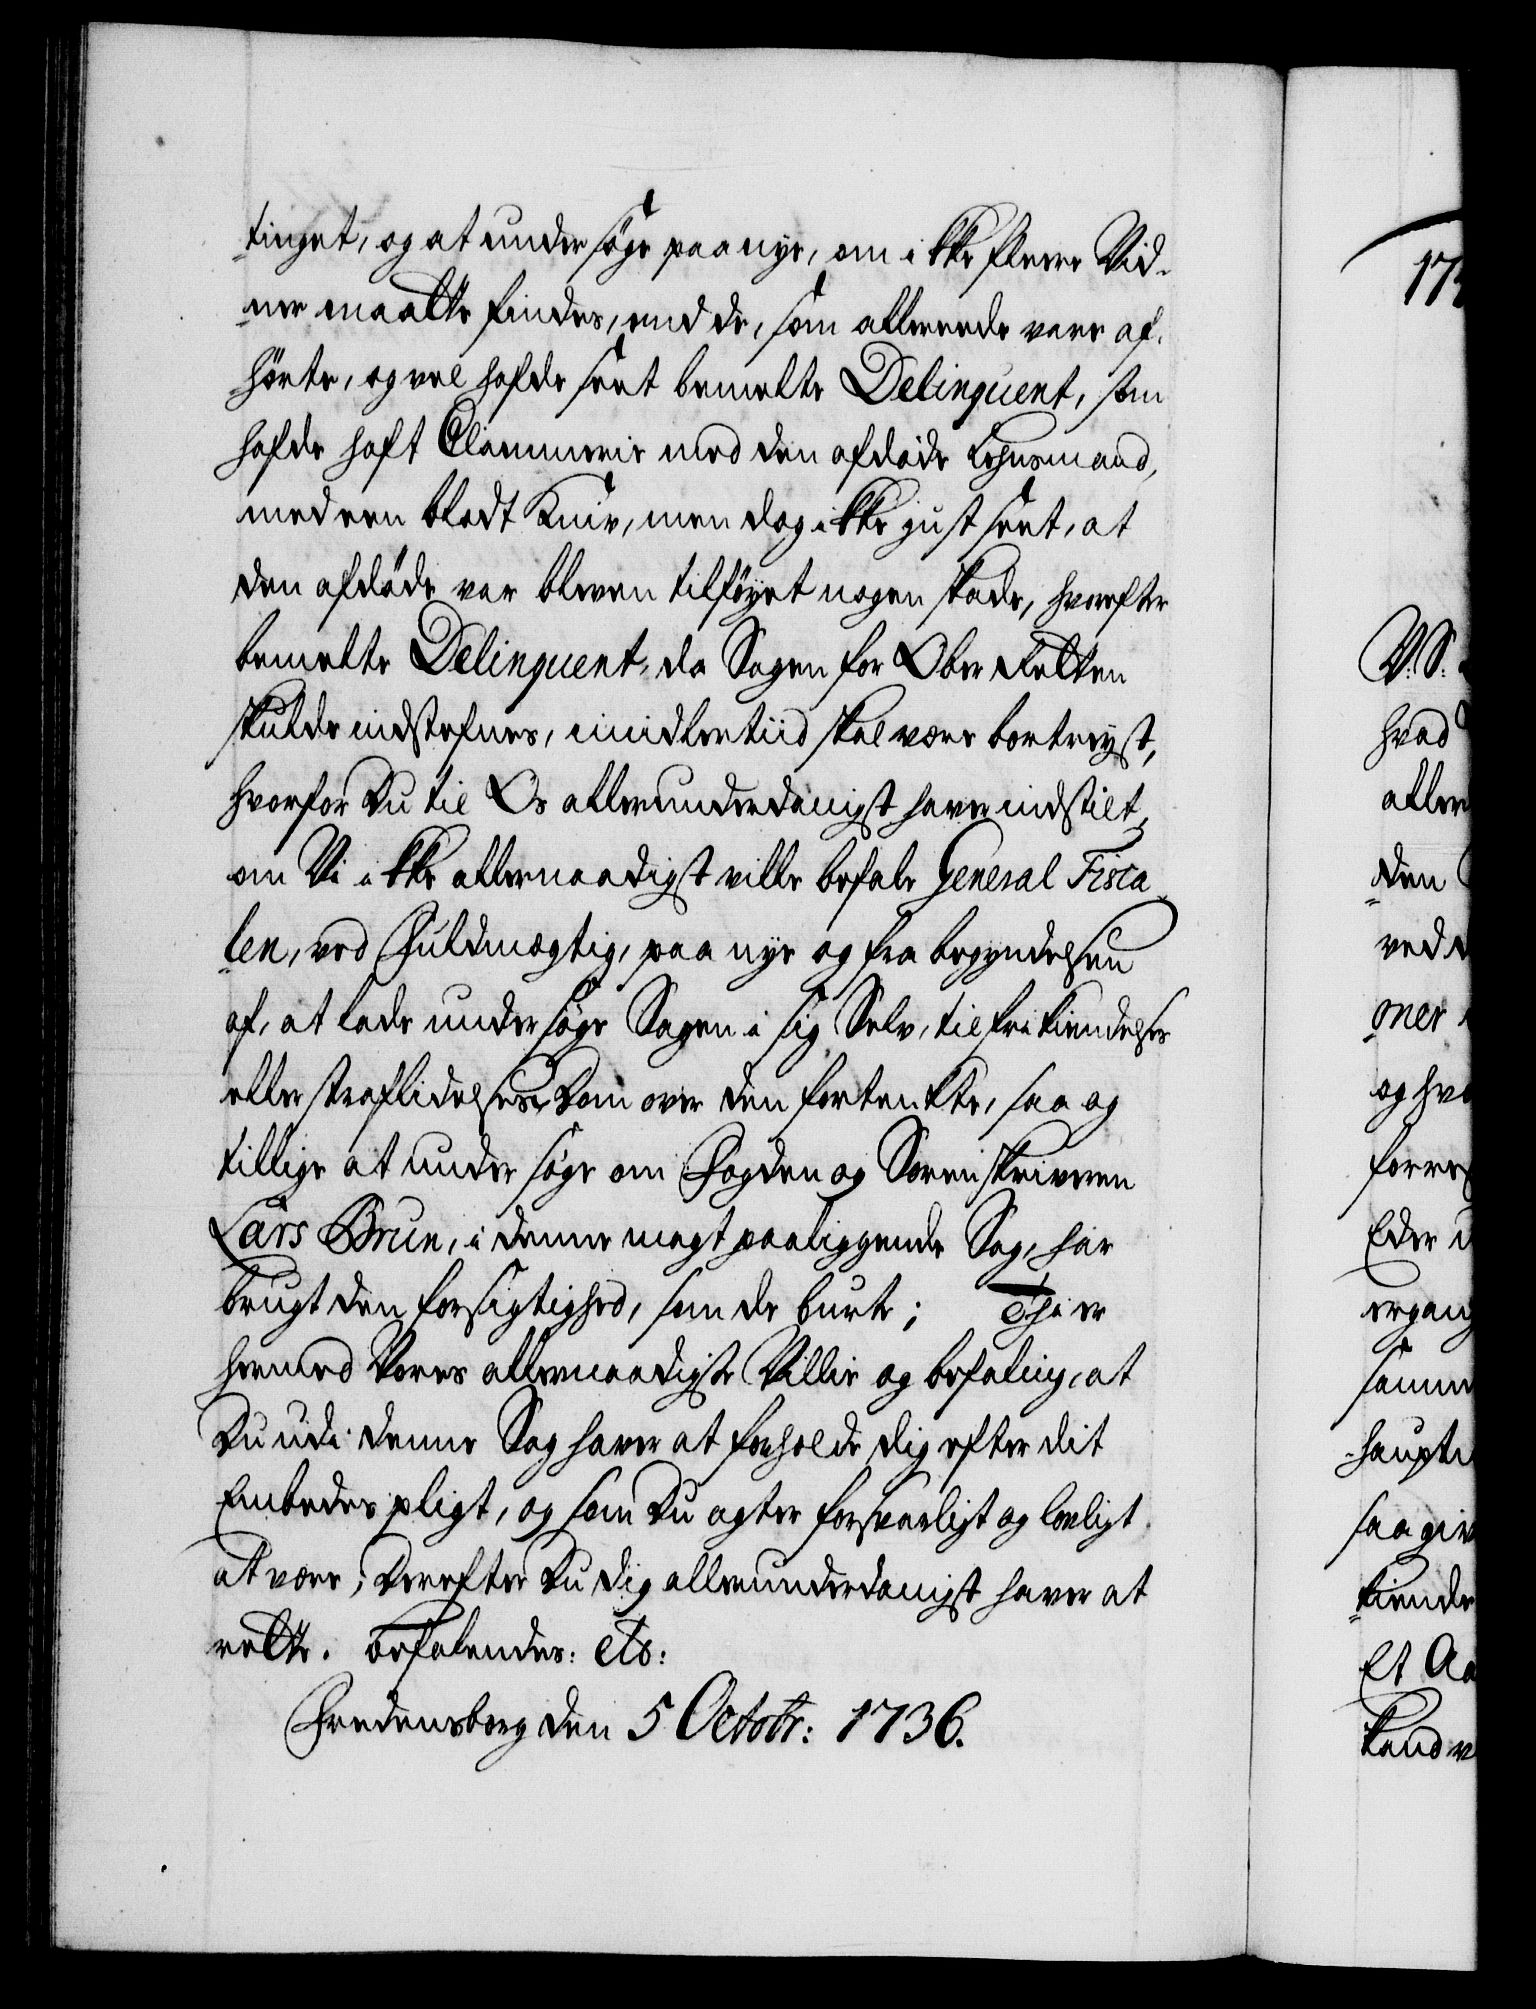 tinget, og at undersøge paa nye, om ikke fleere Vid-
ner maatte findes, end de, som allereede vare af-
hørte, og vel hafde seet bemelte Delinquent, som
hafde haft Clammerie med den afdøde Lehnsmand,
med een blodt Kniv, men dog ikke just seet, at
den afdøde var bleven tilføyet nogen skade, hvorefter
bemelte Delinquent, da Sagen for Ober Retten
skulde indstefnes, imidlertiid skal være bortreyst,
hvorfor Du til Os allerunderdanigst haver indstilt,
om Vi ikke allernaadigst ville befale General Fisca-
len, ved Fuldmægtig, paa nye og fra begyndelsen
af, at lade undersøge Sagen i sig Selv, til frikiendelses
eller straflidelses Dom over den fortenkte, saa og
tillige at undersøge om Fogden og Sorenskriveren
Lars Brun, i denne magtpaaliggende Sag, har
brugt den forsigtighed, som de burte; Thi er
hermed Vores allernaadigste Villie og befaling, at
Du udi denne Sag haver at forholde dig efter dit
Embedes pligt, og som Du agter forsvarligt og lovligt
at være; Derefter Du dig allerunderdanigst haver at
rette. befalendes: etc:
Fredensborg den 5 Octobr: 1736.
173
V. S.
hvad
aller
den
ved
mer
og hvo
forres
Eder u
ergang
samm
haupt
saa giv
kiende
Et Aa
kand v